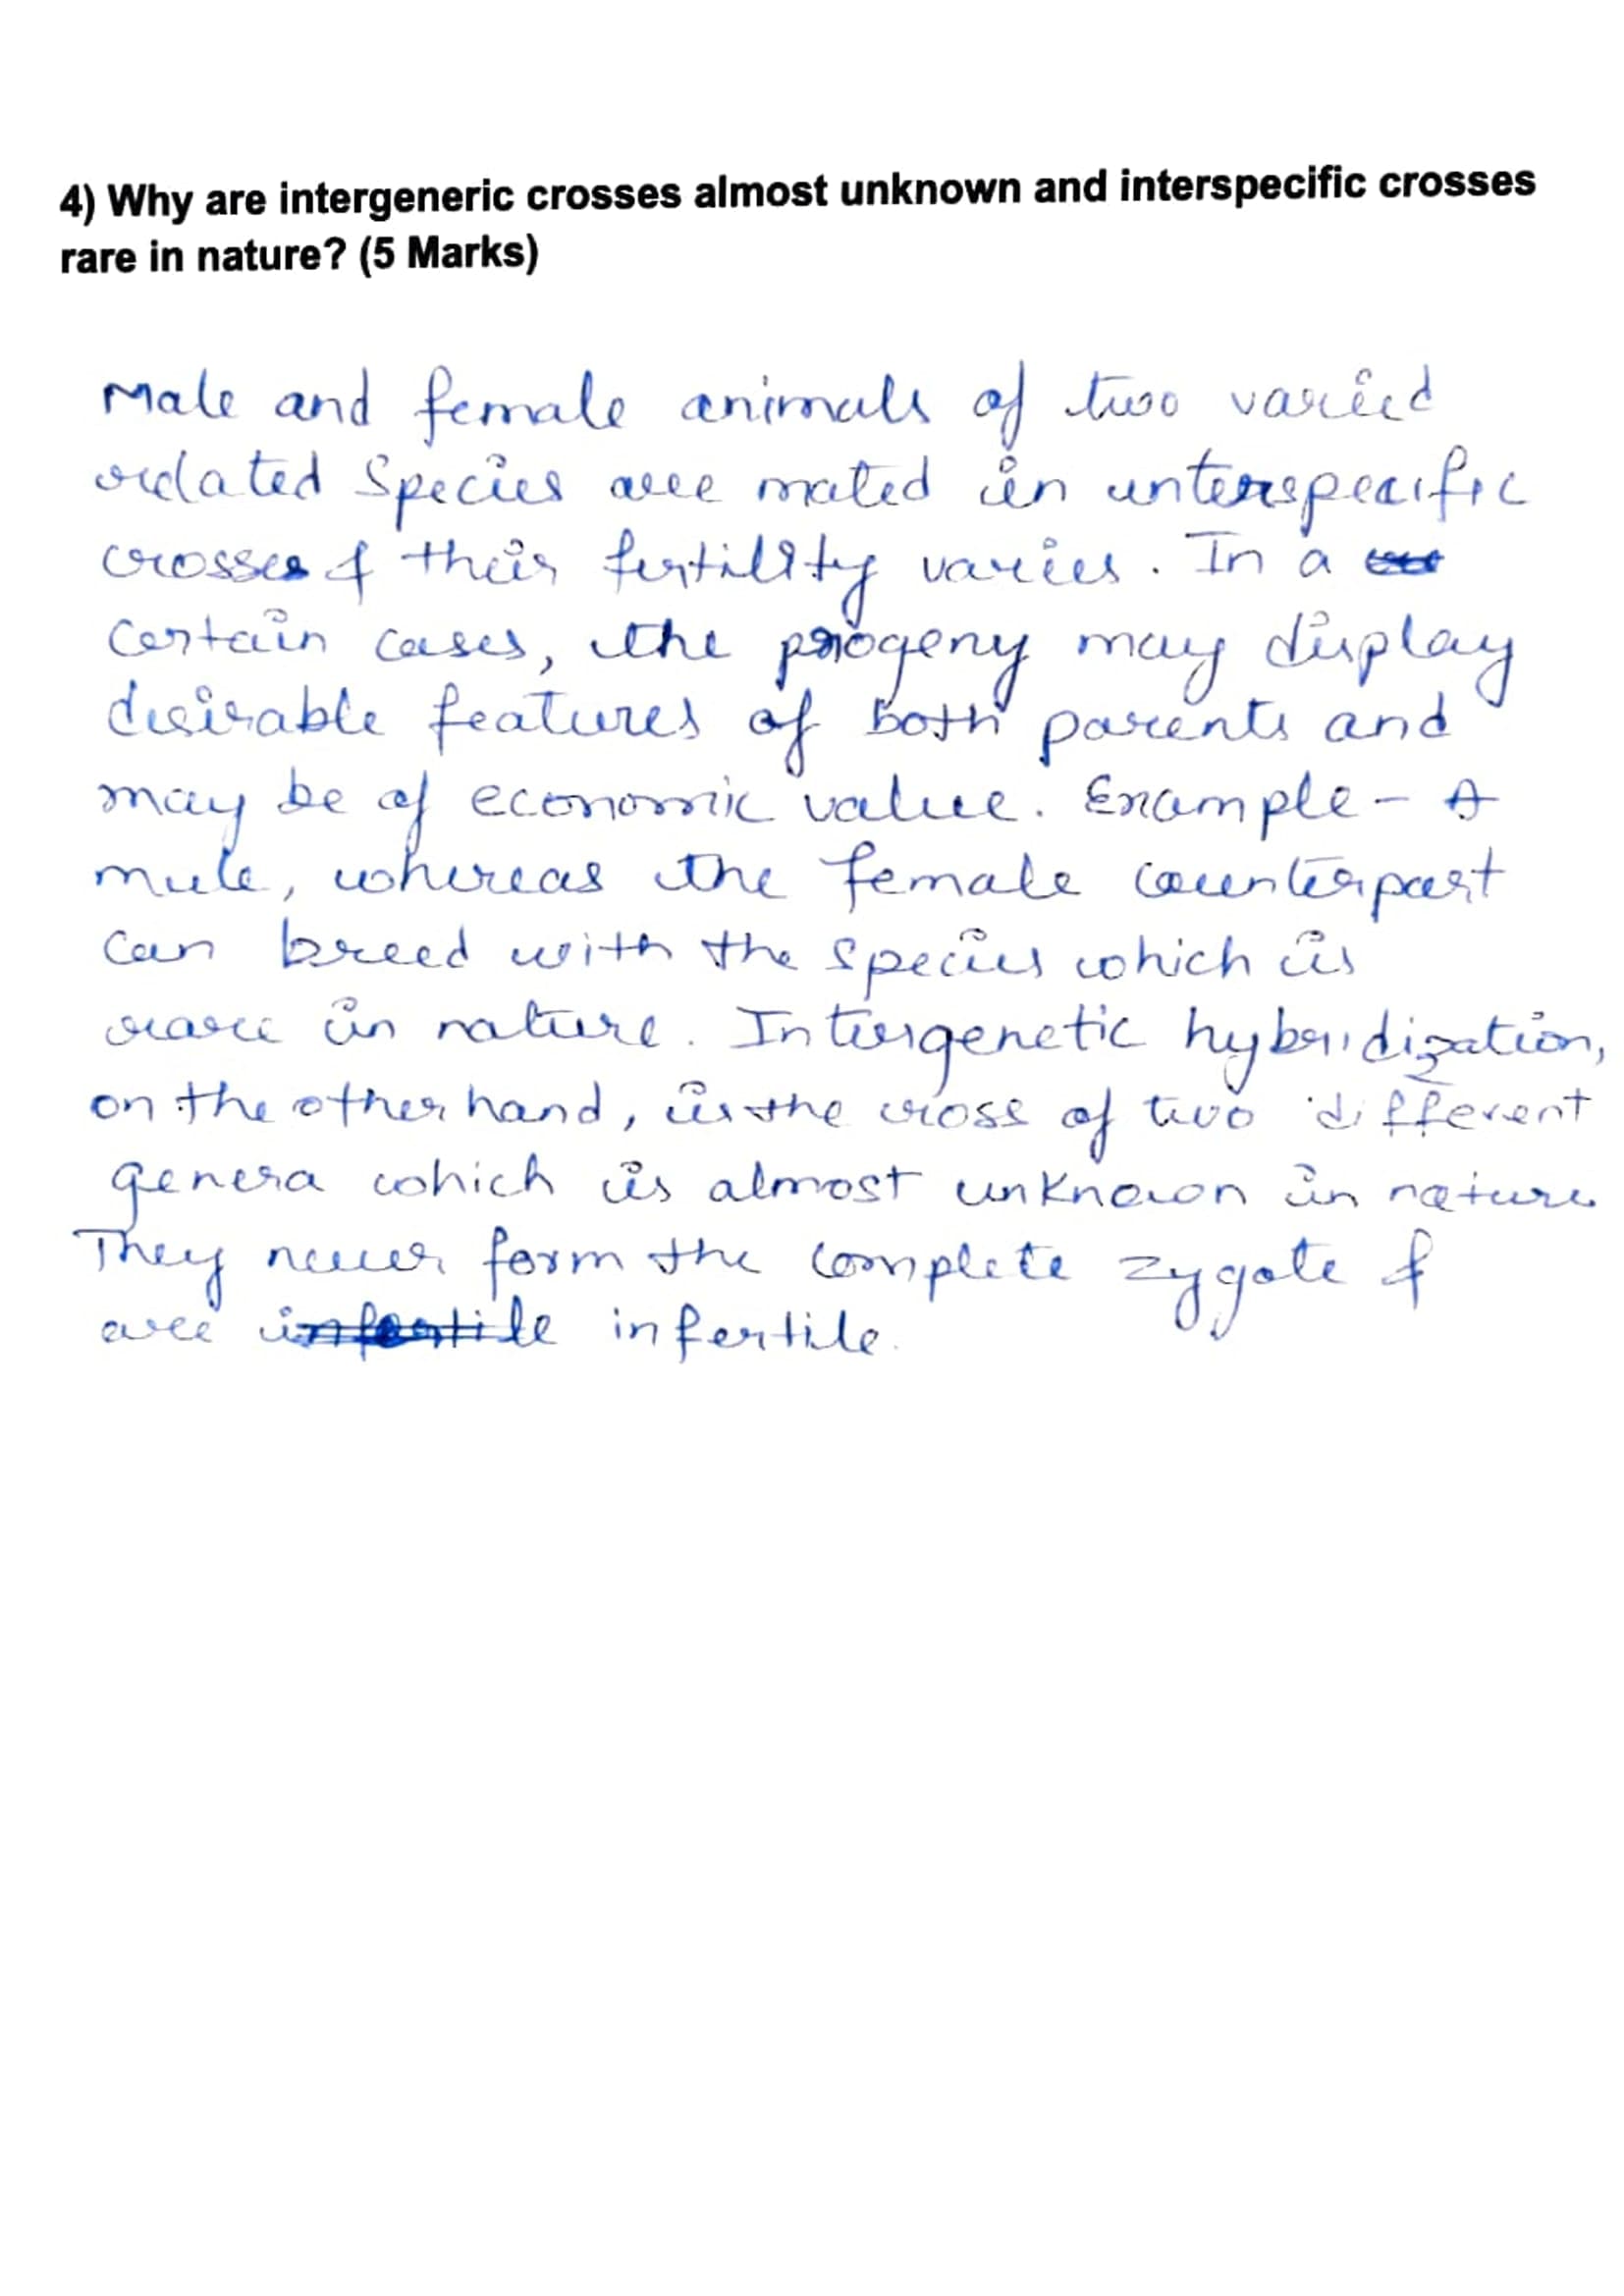 4) Why are intergeneric crosses almost unknown and interspecific crosses
rare in nature? (5 Marks)
Male and female animals of two varied
related Species are mated in interspecific
crosses & their fertility varies. In a
certain cases, the progeny may display
desirable features of both parents and
may be of economic value. Example - A
mule, whereas the female counterpart
can breed with the species which is
rare in nature. Intergenetic hybridization,
on the other hand, is the cross of two different
genera which is almost unknown in nature
They never form the complete zygote &
are infertile infertile.